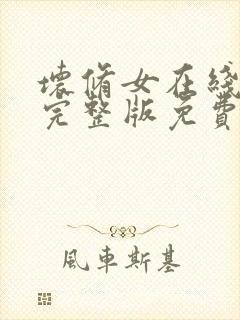 壞脩女在綫
完整版免費
風車斯基